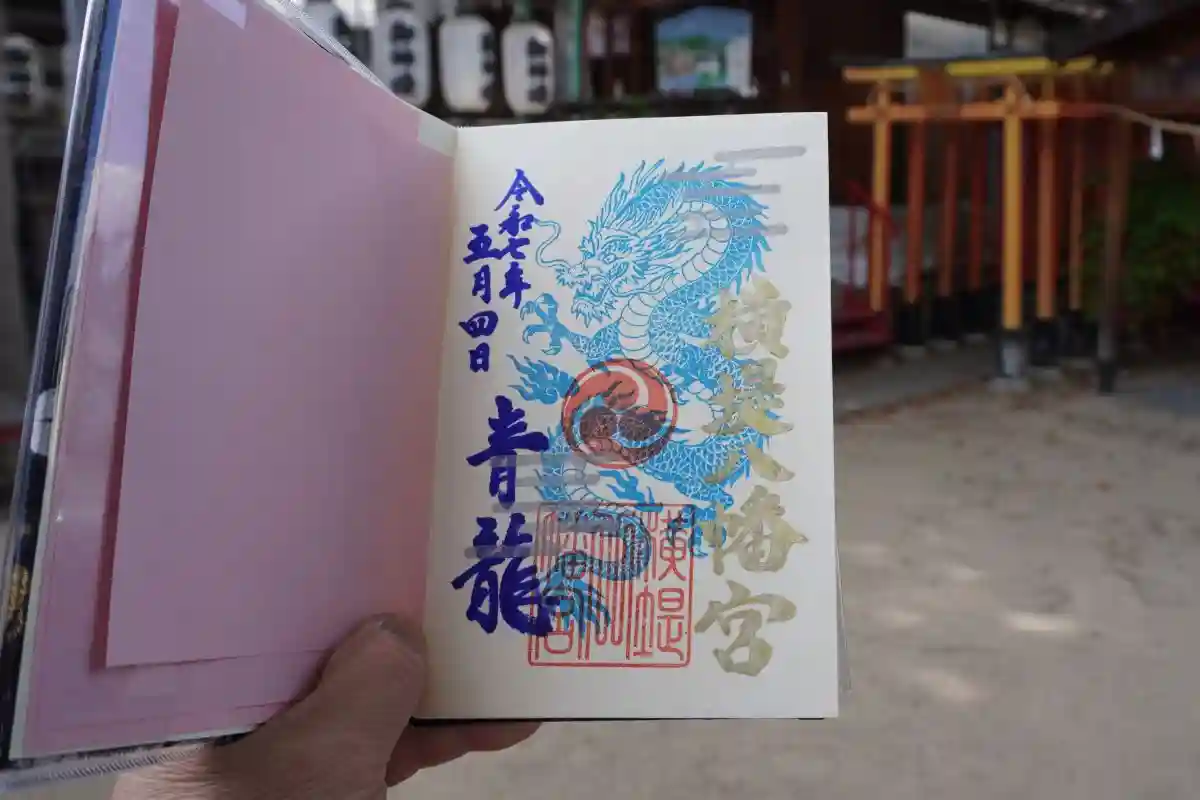 横堤八幡宮
令和七年
五月四日
青龍